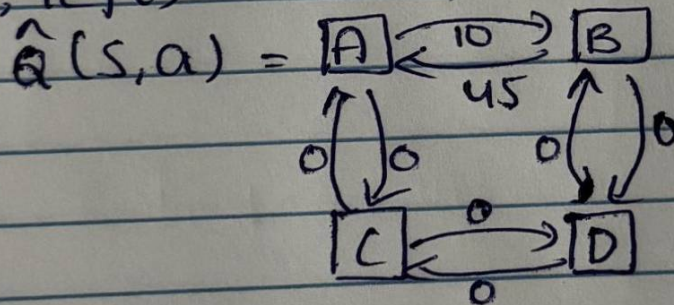 Q̂(S,a) = A 10 B
45
0 0 0 0
C 0 D
0